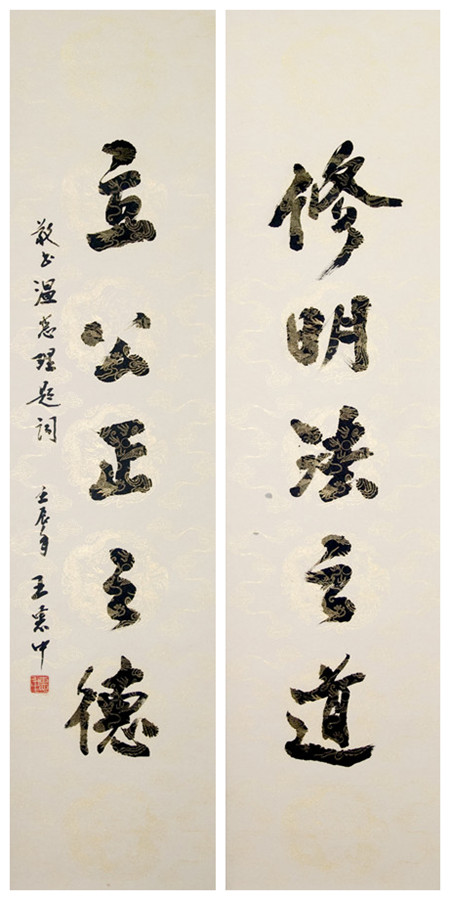 修明法之道
立公正之德
敬书温总理题词
壬辰月 王素中